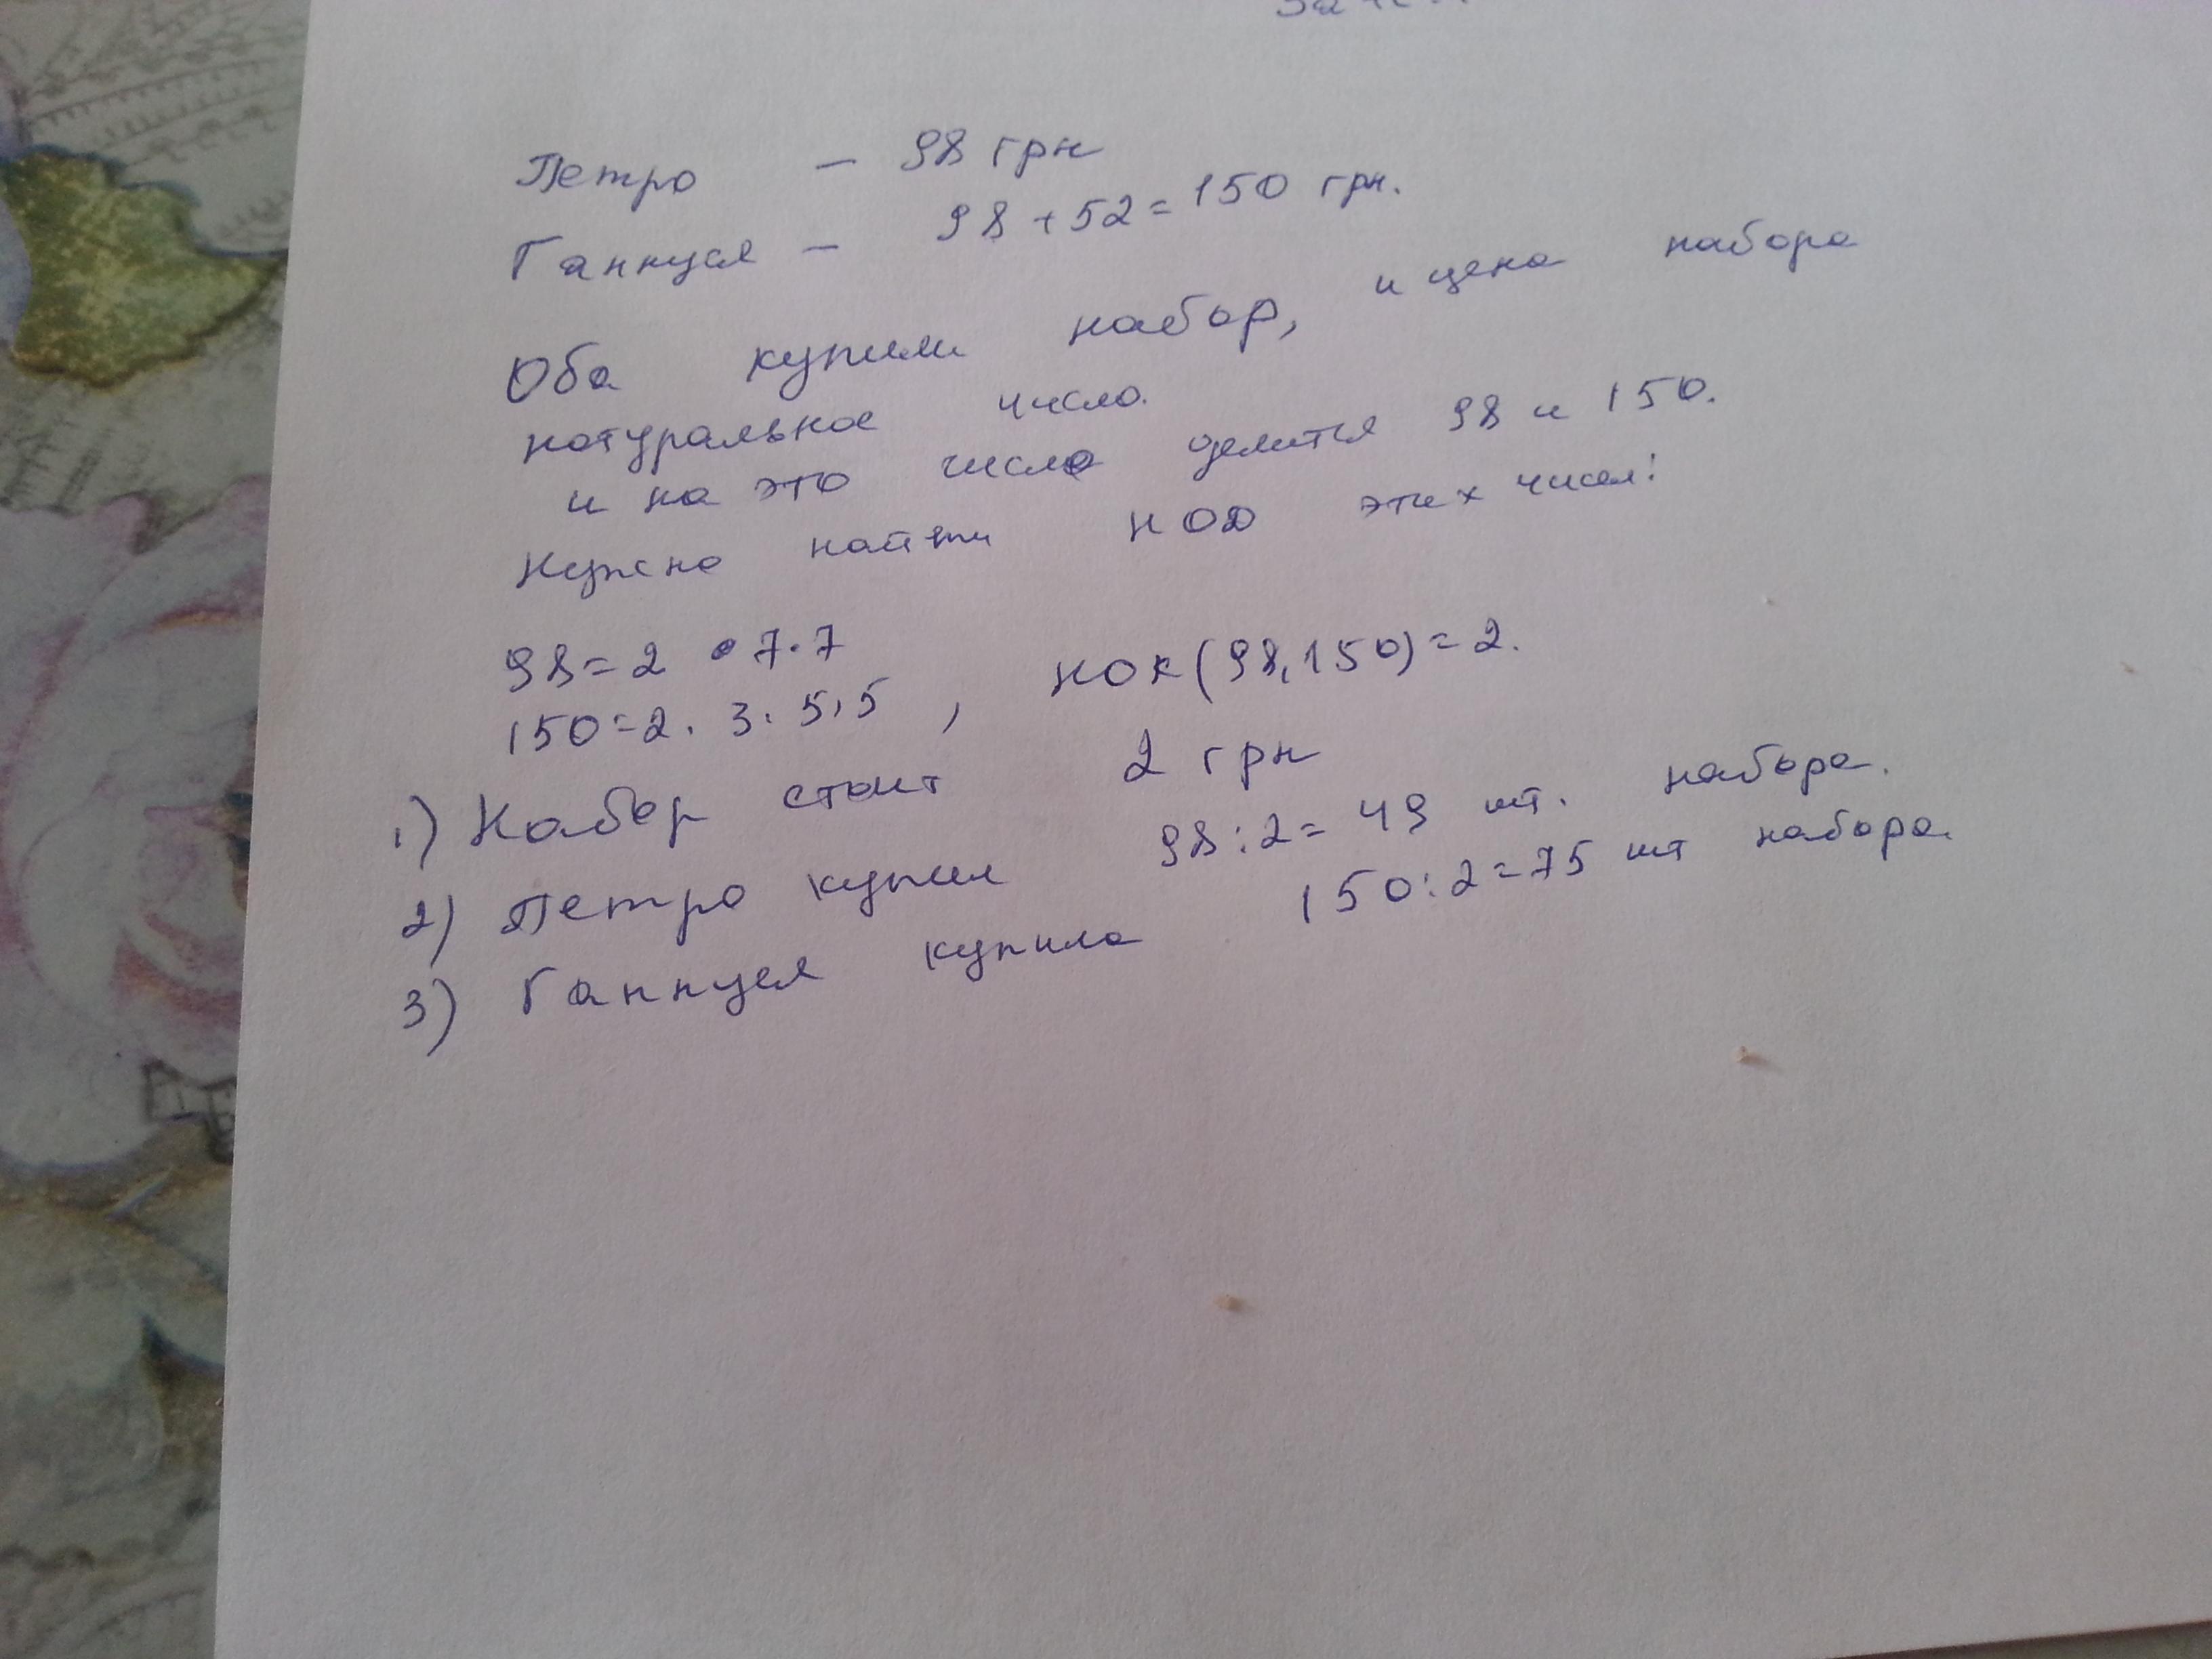 Петро — 98 грн
Ганнуся — 98 + 52 = 150 грн.
Оба купили набор, и цена набора
натуральное число.
и на это число делится 98 и 150.
Нужно найти НОД этих чисел:
98 = 2 • 7 · 7
150 = 2 · 3 · 5 · 5 , НОК (98, 150) = 2.
1) Набор стоит 2 грн
2) Петро купил 98 : 2 = 49 шт. набора.
3) Ганнуся купила 150 : 2 = 75 шт набора.